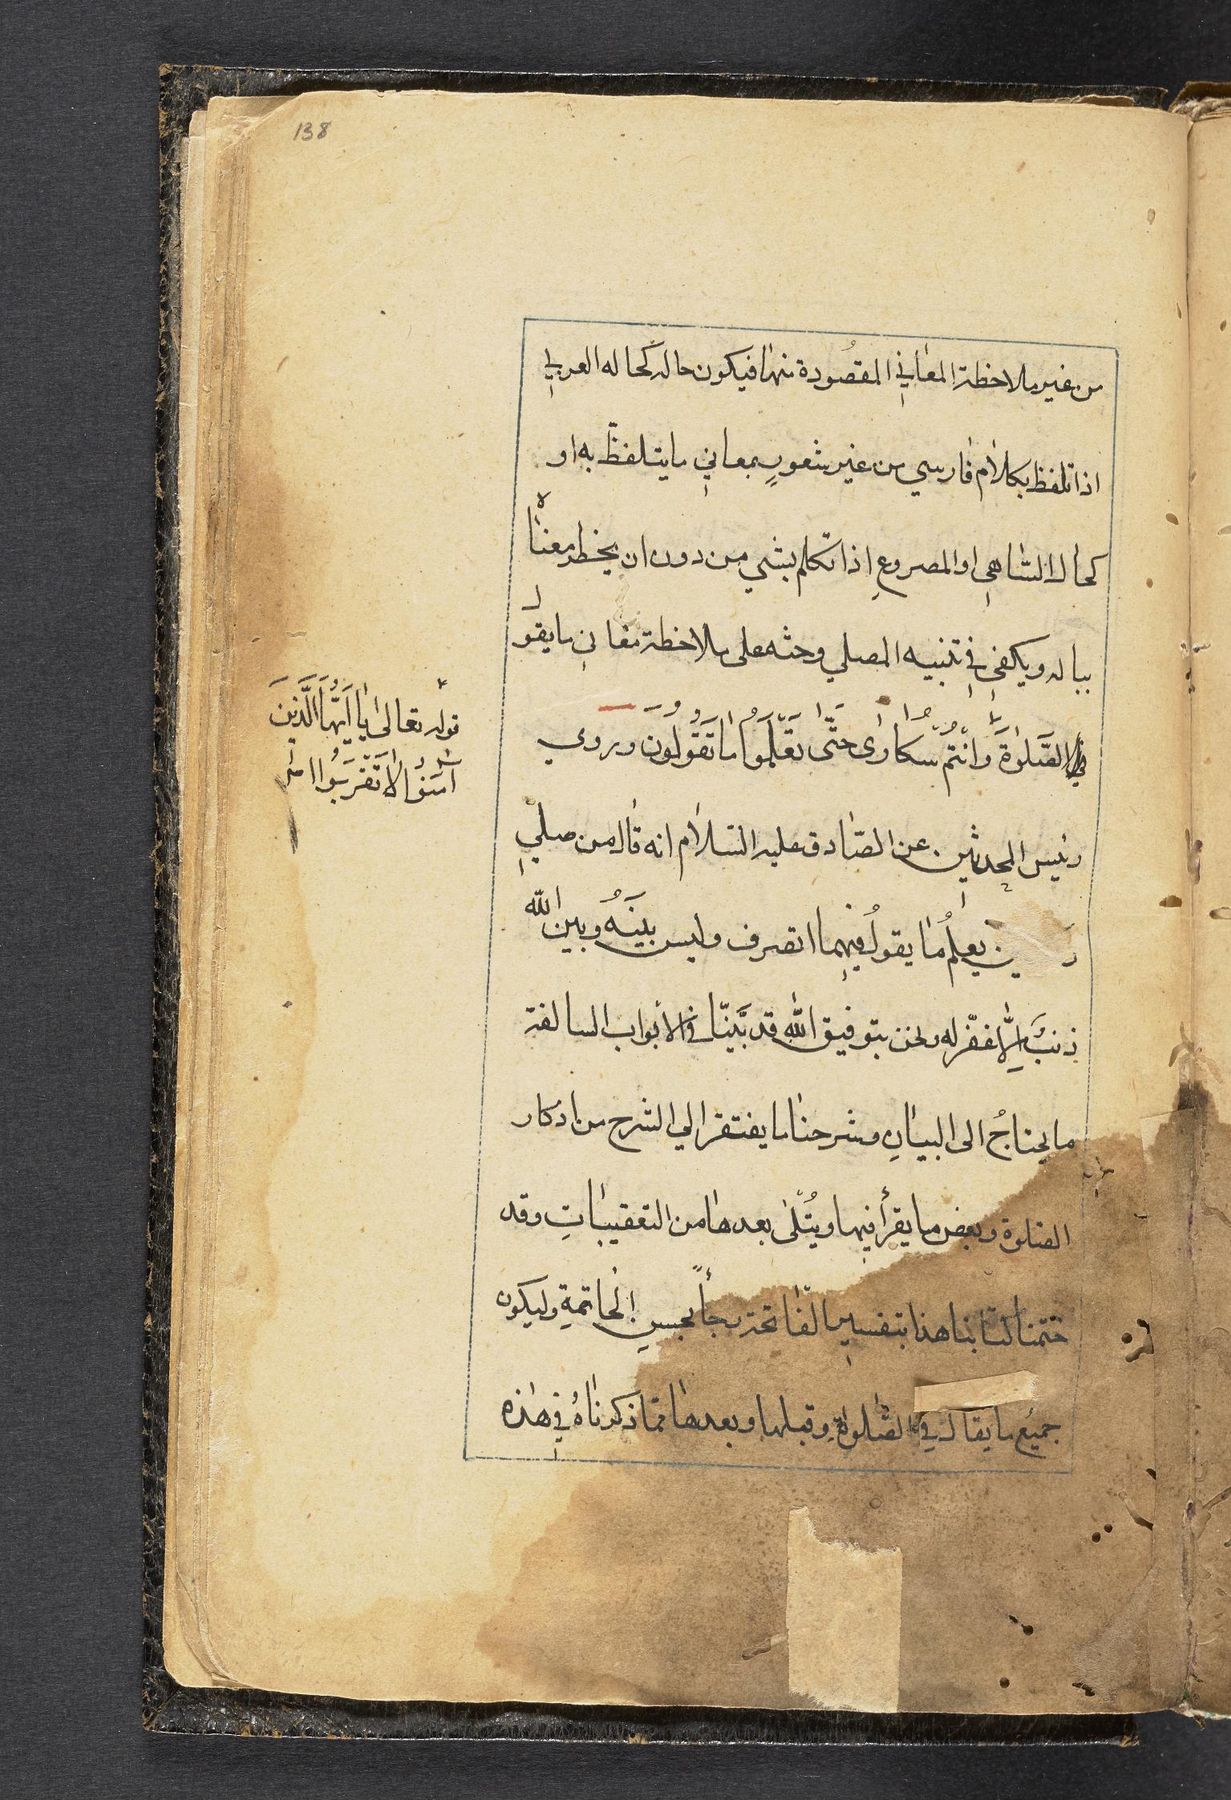 138
من غير ملاحظة المعاني المقصودة منها فيكون حاله كحاله العربي
اذا تلفظ بكلام فارسي من غير شعورٍ بمعاني ما يتلفظ به او
كحال الساهي او المصروع اذا تكلم بشي من دون ان يخطر معناه
بباله ويكفي في تنبيه المصلي وحثه على ملاحظة معاني ما يقول
في الصَّلوٰةَ وَاَنْتُمْ سُكَارىٰ حَتّٰى تَعْلَمُوا مَا تَقُولُونَ وروي
قوله تعالى يٰا اَيُّهَا الَّذينَ
آمَنُوا لاٰ تَقْرَبُوا
رئيس المحدثين عن الصّادق عليه السّلام انه قال من صلي
ين يعلمُ ما يقولُ فيهما انصرف وليس بينَهُ وبين الله
ذنبٌ اِلّا غفر له ونحن بتوفيق الله قد بَيَّنّا في الابواب السالفة
ما يحتاجُ الى البيانِ وشرحنا ما يفتقر الي الشرح من اذكار
الصلوة وبعض ما يقرأ فيها ويُتلى بعدها من التعقيباتِ وقد
ختمنا كتابنا هذا بتفسير الفاتحة رجاًء لحسن الخاتمةِ وليكون
جميع ما يقال في الصّلوٰةِ وقبلها وبعدها ممّا ذكرناهُ في هٰذه